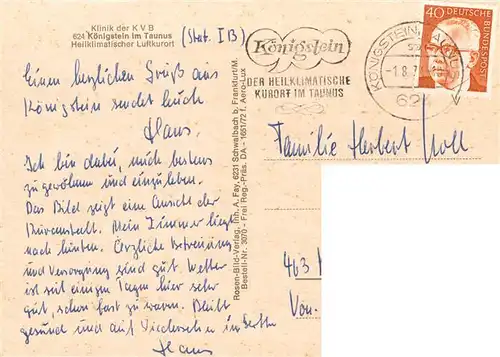 Klinik der K V B
624 Königstein im Taunus
Heilklimatischer Luftkurort
(Stat. I B)
Einen herzlichen Gruß aus
Königstein sendet Euch
Hans.
Ich bin dabei, mich bestens
zu gewöhnen und einzuleben.
Das Bild zeigt eine Ansicht der
Kuranstalt. Mein Zimmer liegt
nach hinten. Ärztliche Betreuung
und Versorgung sind gut. Wetter
ist seit einigen Tagen hier sehr
gut, schon fast zu warm. Bleibt
gesund und auf Wiedersehen im
Hans
Rosen-Bild-Verlag, Inh. A. Fay, 6231 Schwalbach b. Frankfurt/M.
Bestell-Nr. 3070 - Frei Reg.-Präs. DA - 1651/72 f. Aero-Lux
Königstein
DER HEILKLIMATISCHE
KURORT IM TAUNUS
KÖNIGSTEIN, TAUNUS
-1.8.7
624
40
DEUTSCHE
BUNDESPOST
Familie Herbert
463
Von-